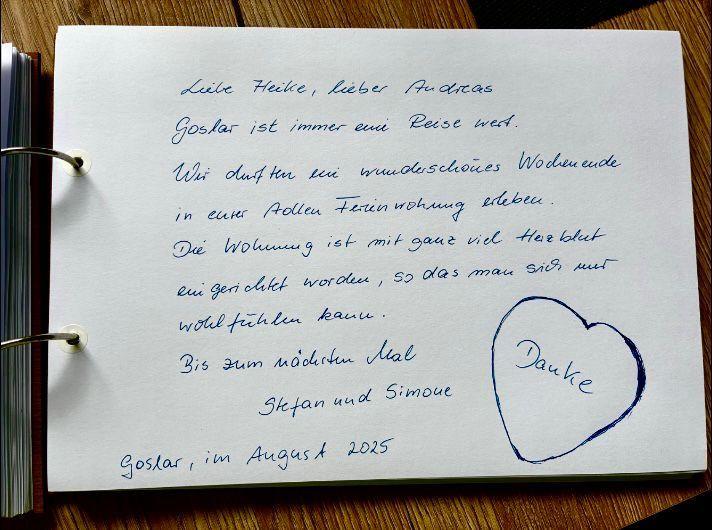 Liebe Heike, lieber Andreas
Goslar ist immer eine Reise wert.
Wir durften ein wunderschönes Wochenende
in eurer tollen Ferienwohnung erleben.
Die Wohnung ist mit ganz viel Herzblut
eingerichtet worden, so das man sich nur
wohlfühlen kann.
Bis zum nächsten Mal
Stefan und Simone
Danke
Goslar, im August 2025